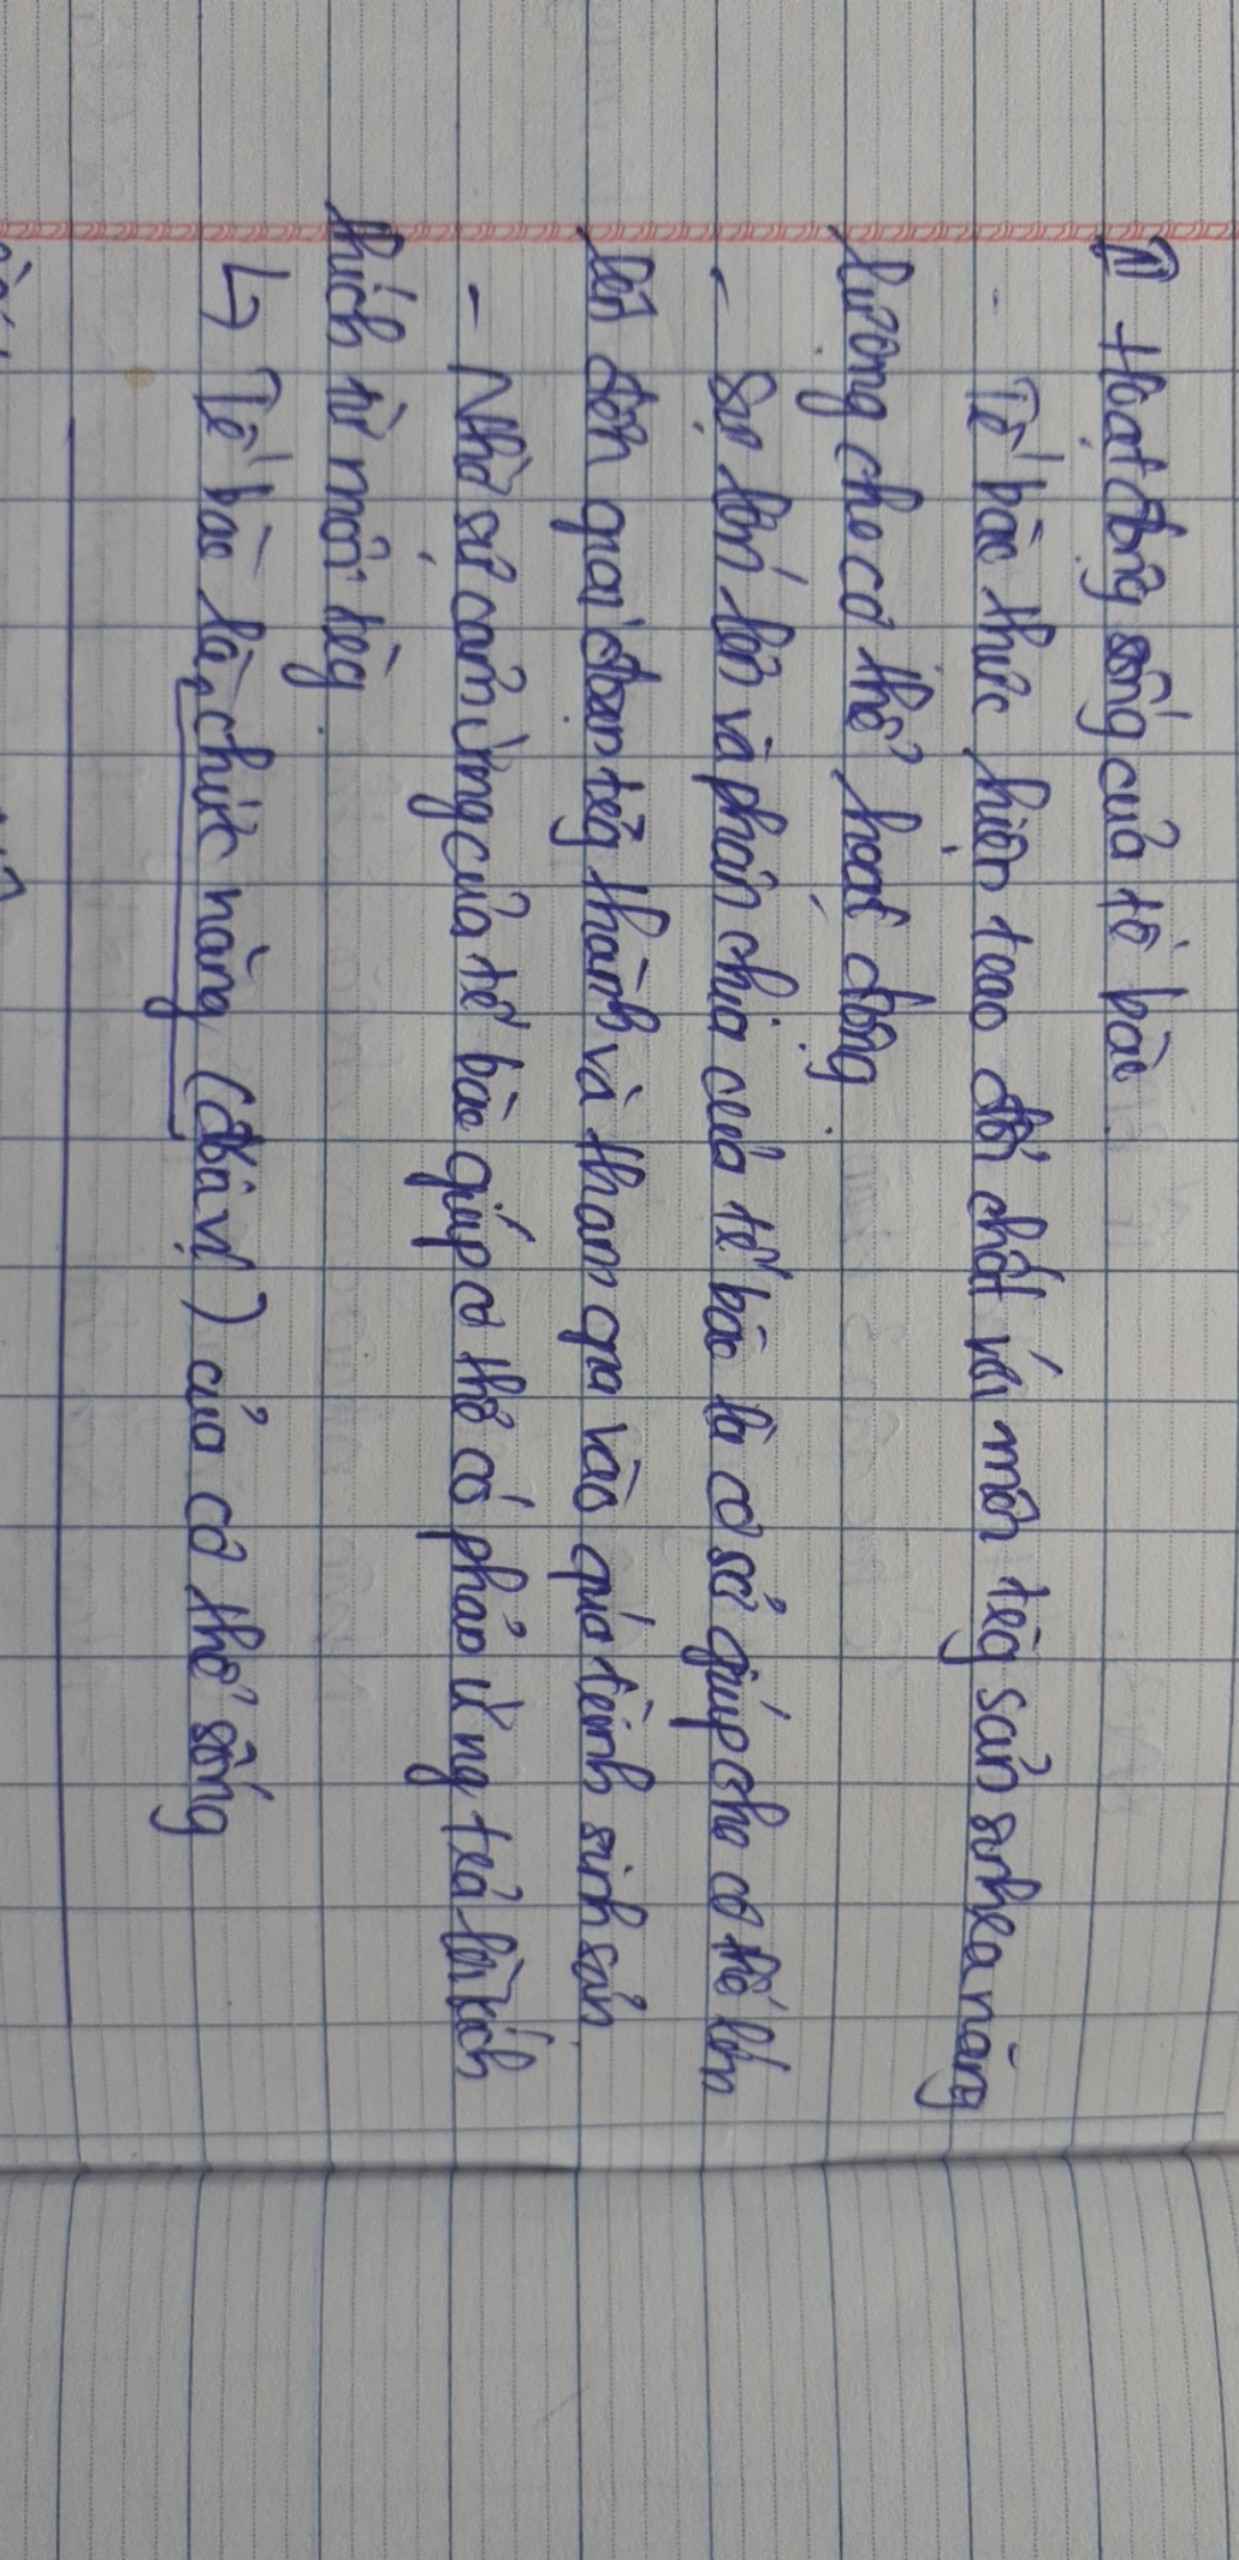 IV Hoạt động sống của tế bào
- Tế bào thực hiện trao đổi chất với môi trg sản sinh ra năng
lượng cho cơ thể hoạt động.
- Sự lớn lên và phân chia của tế bào là cơ sở giúp cho cơ thể lớn
lên đến giai đoạn trg thành và tham gia vào quá trình sinh sản.
- Nhờ sự cảm ứng của tế bào giúp cơ thể có phản ứng trả lời kích
thích từ môi trg.
↳ Tế bào là chức năng (đơn vị) của cơ thể sống